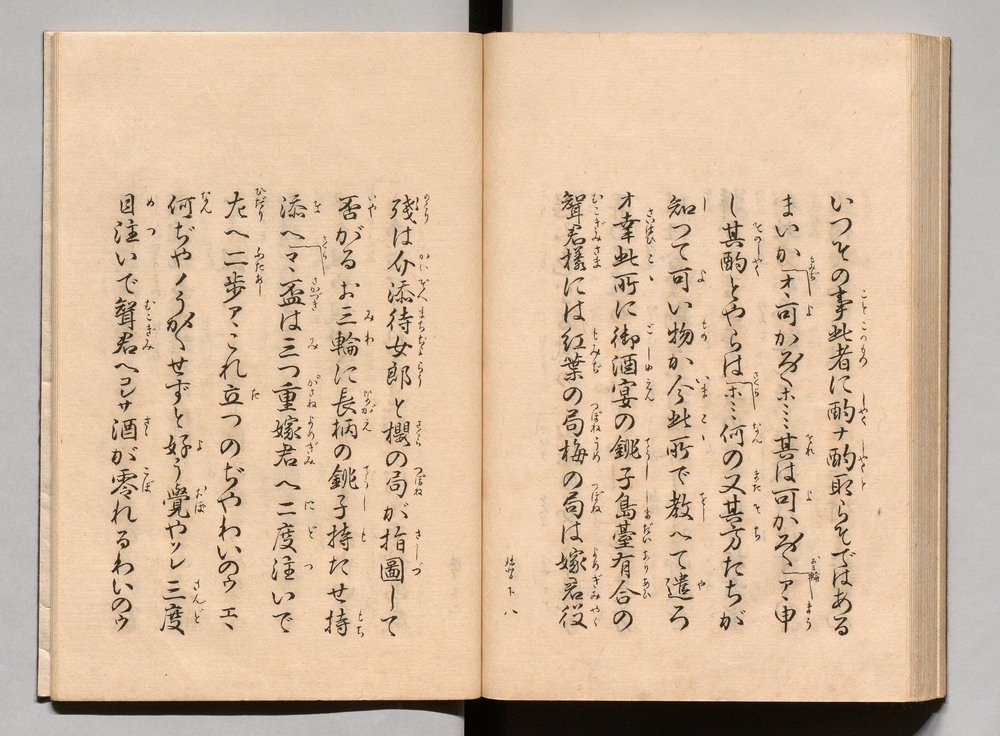 いつその事此者に酌ナ酌取らそではある
まいかオヽ可かろ〱ホヽヽ其は可かろ〱アヽ申
し其酌とやらはホヽヽ何の又其方たちが
知つて可い物か今此所で教へて遣ろ
オ幸此所に御酒宴の銚子島臺有合の
聟君樣には紅葉の局梅の局は嫁君役
殘は介添待女郎と櫻の局が指圖して
否がるお三輪に長柄の銚子持たせ持
添へマヽ盃は三つ重嫁君へ二度注いで
左へ二歩アヽこれ立つのぢやわいのウエヽ
何ぢやノうか〱せずと好う覺やソレ三度
目注いで聟君へコレサ酒が零れるわいのウ
下 八